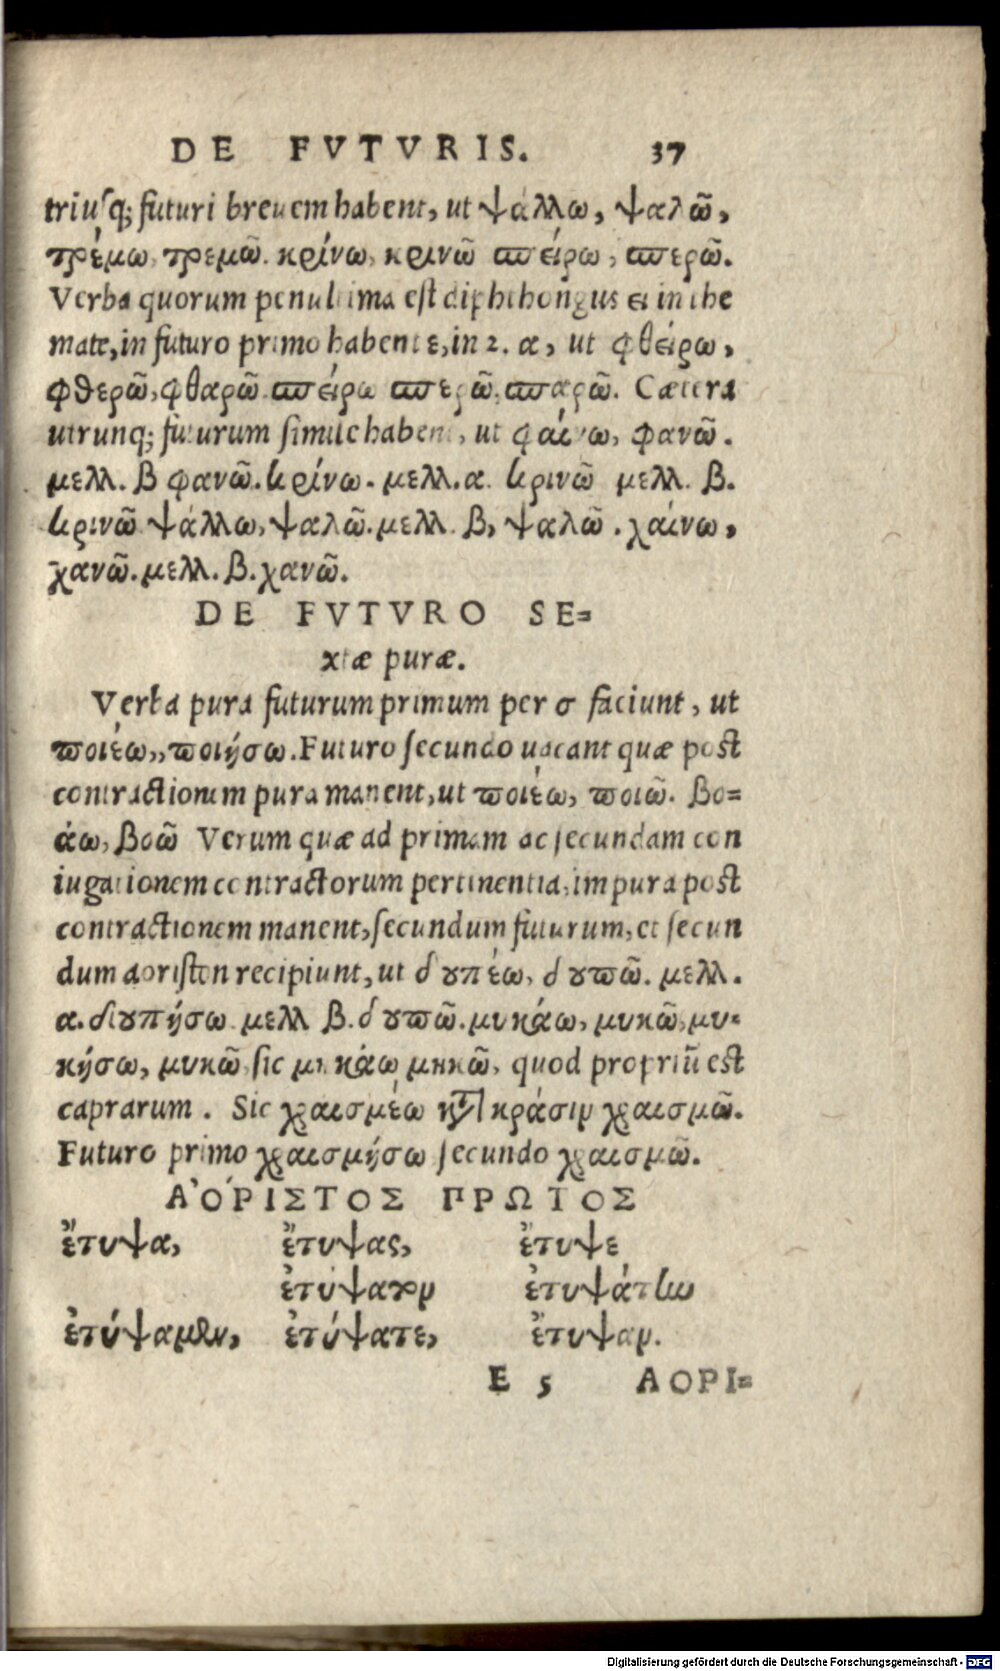 DE FVTVRIS. 37
triusq; futuri breuem habent, ut ψάλλω, ψαλῶ,
τρέμω, τρεμῶ. κρίνω, κρινῶ σπείρω, σπερῶ.
Verba quorum penultima est diphthongus ει in the
mate, in futuro primo habent ε, in 2. α, ut φθείρω,
φθερῶ, φθαρῶ σπείρω σπερῶ. σπαρῶ. Cætera
utrunq; futurum simile habent, ut φαίνω, φανῶ.
μελλ. β φανῶ. κρίνω. μελλ. α. κρινῶ μελλ. β.
κρινῶ ψάλλω, ψαλῶ. μελλ. β, ψαλῶ. χαίνω,
χανῶ. μελλ. β. χανῶ.
DE FVTVRO SE=
xtæ puræ.
Verba pura futurum primum per σ faciunt, ut
ποιέω,, ποιήσω. Futuro secundo uacant quæ post
contractionem pura manent, ut ποιέω, ποιῶ. βο=
άω, βοῶ Verum quæ ad primam ac secundam con
iugationem contractorum pertinentia, impura post
contractionem manent, secundum futurum, et secun
dum aoriston recipiunt, ut δουπέω, δουπῶ. μελλ.
α. δουπήσω μελλ β. δουπῶ. μυκάω, μυκῶ, μυ-
κήσω, μυκῶ sic μηκάω μηκῶ, quod propriū est
caprarum. Sic χραισμέω κτ κράσιν χραισμῶ.
Futuro primo χραισμήσω secundo χραισμῶ.
ΑʼΟΡΙΣΤΟΣ ΠΡΩΤΟΣ
ἔτυψα, ἔτυψας, ἔτυψε
ἐτύψατον ἐτυψάτην
ἐτύψαμεν, ἐτύψατε, ἔτυψαν.
E 5 ΑΟΡΙ=
Digitalisierung gefördert durch die Deutsche Forschungsgemeinschaft - DFG